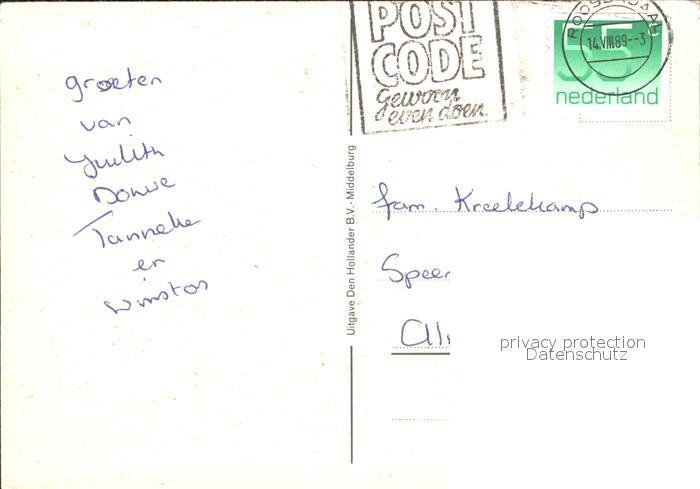 groeten
van
Judith
Douwe
Tanneke
en
Winston
POST
CODE
Gewoon
even doen.
ROOSENDAAL
14.VIII.89.--3
55
nederland
Uitgave Den Hollander B.V. - Middelburg
fam. Kreelekamp
Speer
privacy protection
Datenschutz